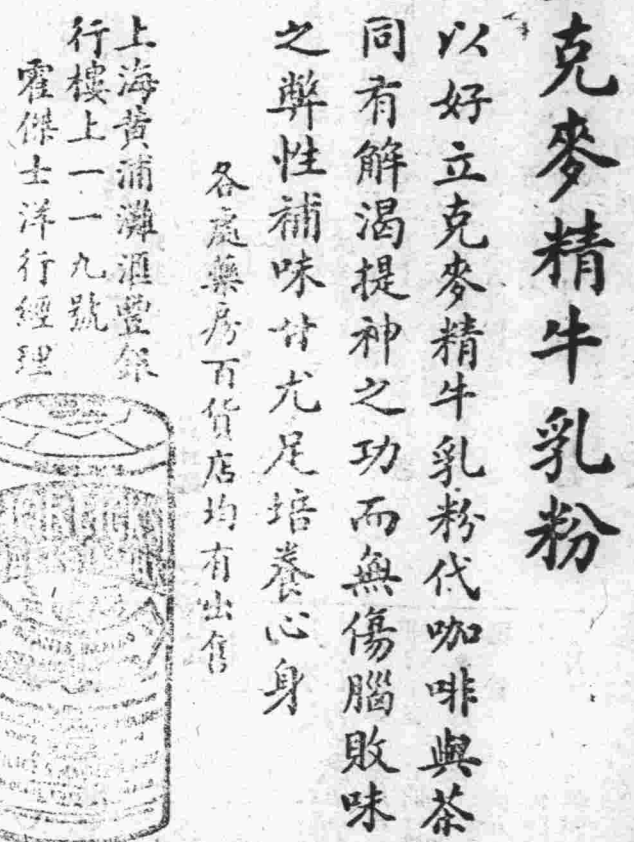 克麥精牛乳粉
以好立克麥精牛乳粉代咖啡與茶
同有解渴提神之功而無傷腦敗味
之弊性補味甘尤足培養心身
各處藥房百貨店均有出售
上海黄浦灘滙豐銀
行樓上一一九號
霍傑士洋行經理